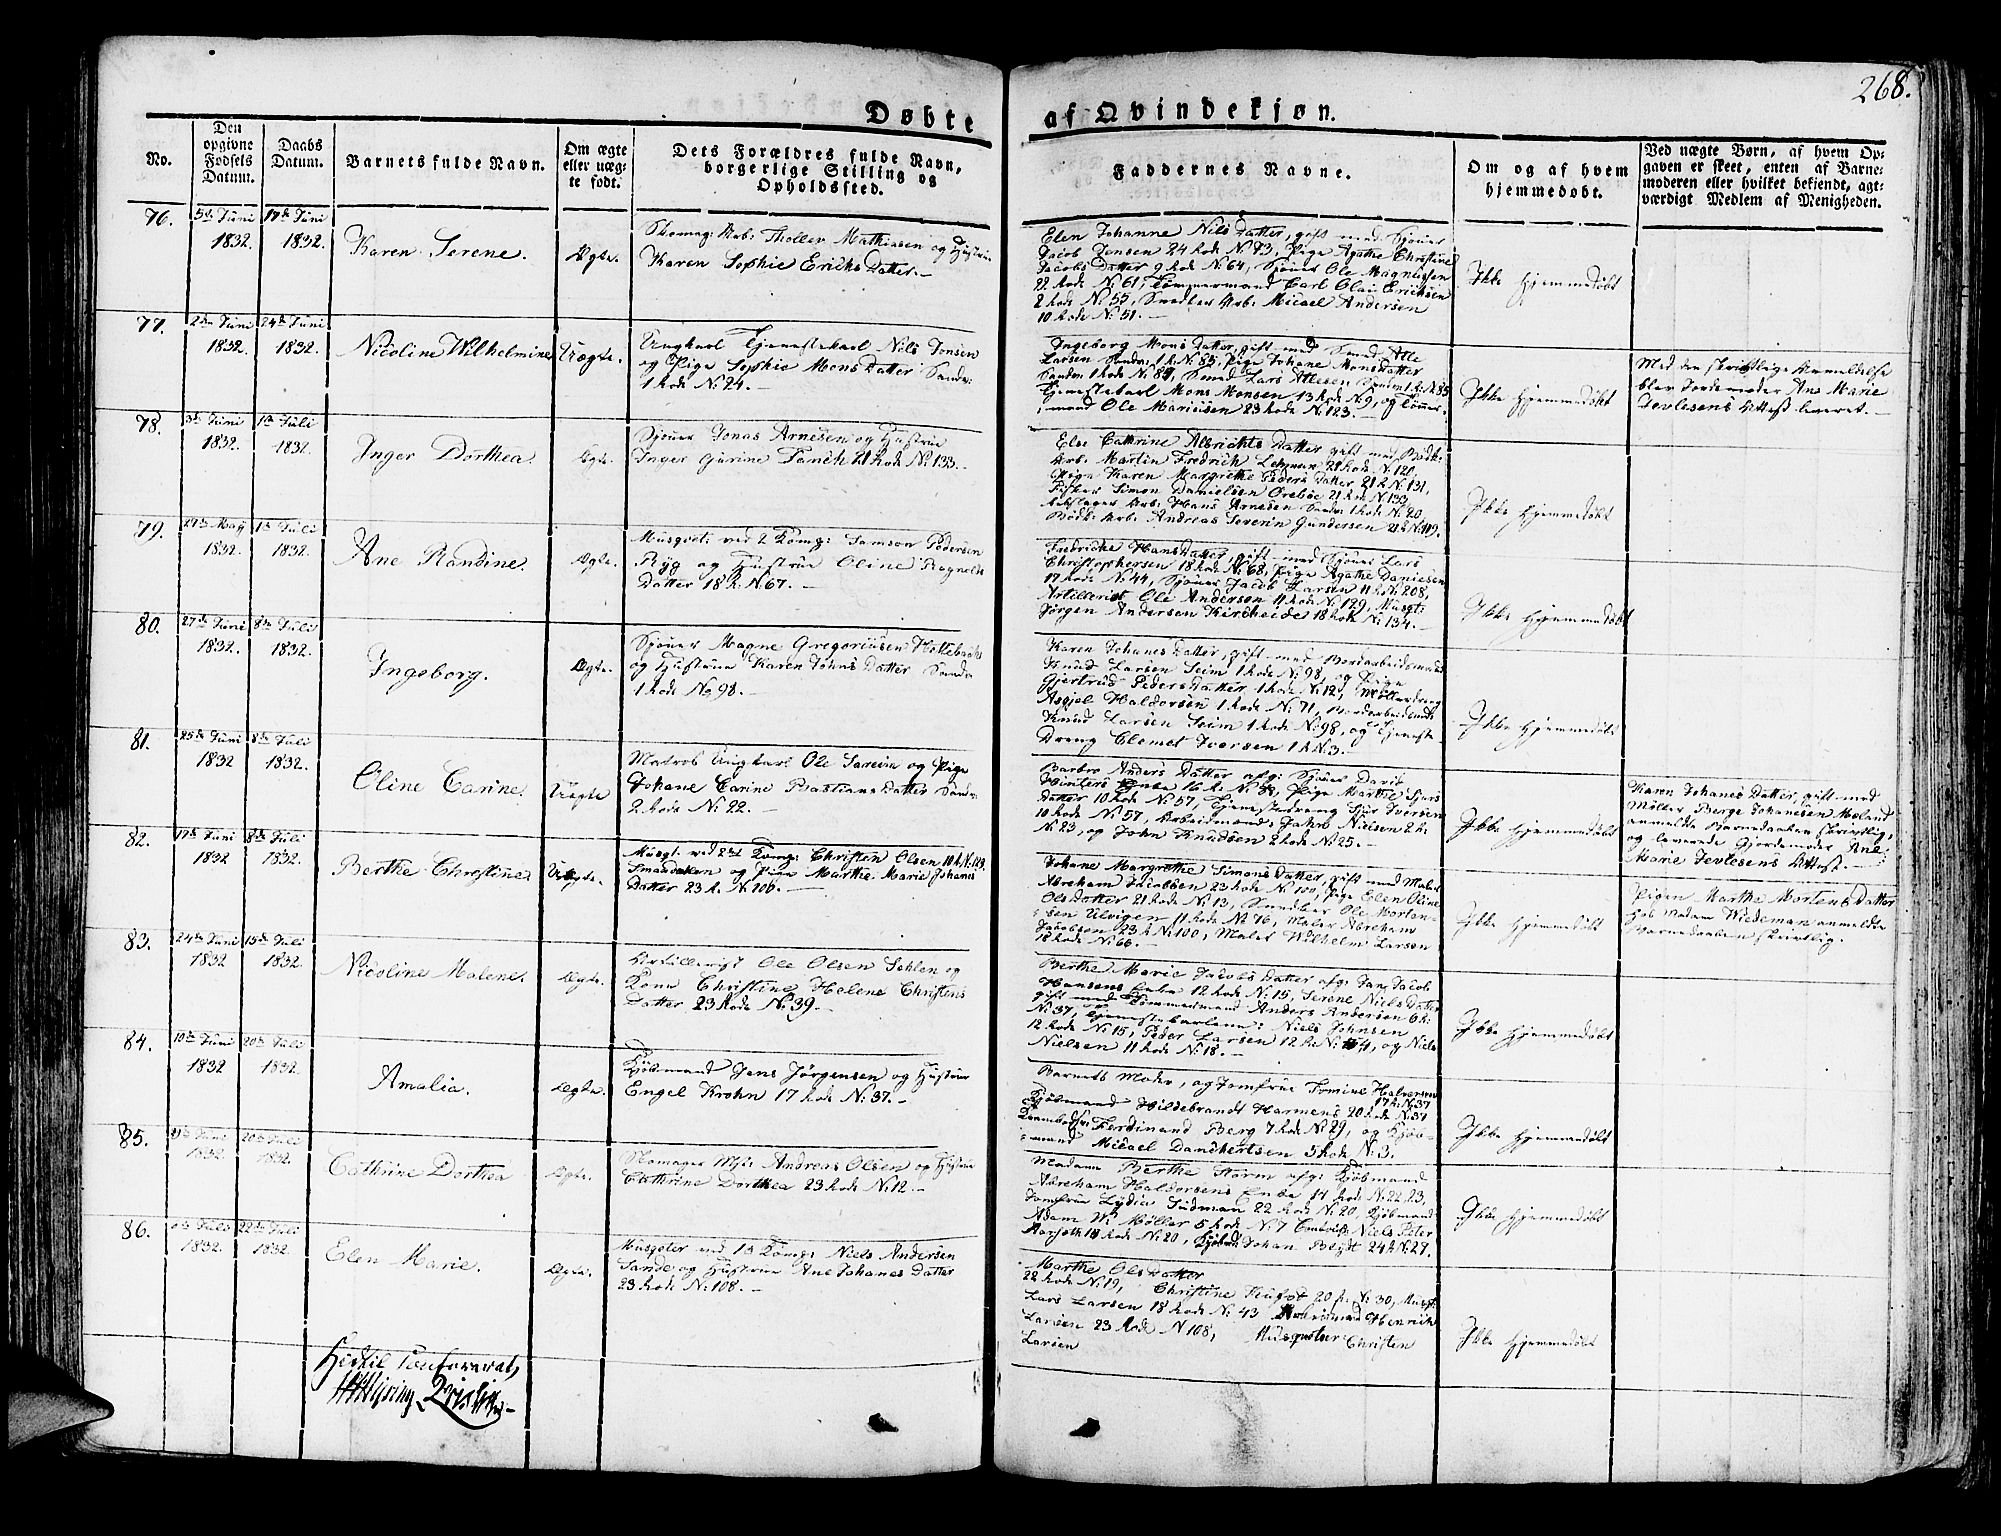 268.
Døbte af Qvindekjøn.
No.
Den opgivne Fødsels Datum.
Daabs Datum.
Barnets fulde Navn.
Om ægte eller uægte født.
Dets Forældres fulde Navn, borgerlige Stilling og Opholdssted.
Faddernes Navne.
Om og af hvem hjemmedøbt.
Ved uægte Børn, af hvem Opgaven er skeet, enten af Barnemoderen eller hvilket bekjendt, agtværdigt Medlem af Menigheden.
76.
5te Juni 1832.
17de Juni 1832.
Karen Serene.
Ægte.
Skomag: Arb: Tholler Mathiasen og Hustrue
Karen Sophie Ericks Datter. –
Elen Johanne Nils Datter, gift med Sjouer
Jacob Jensen 24 Rode No 73, Pige Agathe Christine
Jacobs Datter 9 Rode No 64, Sjouer Ole Magnussen
22 Rode No 61, Tömmermand Carl Olai Ericksen
2 Rode No 55, Smedker Arb: Micael Andersen
10 Rode No 51. –
Ikke Hjemmedöbt
77.
2den Juni 1832.
24de Juni 1832.
Nicoline Wilhelmine
Uægte.
Ungkarl Tjenestekarl Nils Jonsen
og Pige Sophie Mons Datter Sandv:
1 Rode No 24. –
Ingeborg Mons Datter, gift med Smed: Atle
Larsen Sandv: 1 R. No 85, Pige Johane Monsdatter
Sandv: 1 Rode No 84, Smed Lars Atlesen Sandv: 1 R. No 85
Tjenestekarl Mons Monsen 13 Rode No 9, og Tömmer-
mand Ole Mariusen 23 Rode No 123. –
Ikke Hjemmedöbt
Med den skriftlige Anmeldelse
blev Jordemoder Ane Marie
Tevlesens Attest leveret. –
78.
3de Juni 1832.
1te Juli 1832.
Inger Dorthea
Ægte.
Sjouer Jonas Arnesen og Hustrue
Inger Gurine Fanch 21 Rode No 133. –
Else Cathrine Albrichts Datter gift med Bödk:
Arb. Martin Fredrich Lehmann 21 Rode No 120,
Pige Karen Margrethe Peders Datter 21 R No 131,
Fisker Simon Danielsen Öreböe 21 R No 133,
Rebslager Arb: Hans Arnesen Sandv: 1 Rode No 20,
Bödk: Arb: Andreas Severin Gundersen 21 R No 119.
Ikke Hjemmedöbt
79.
29de May 1832.
1te Juli 1832.
Ane Randine.
Ægte.
Musqvet: ved 2 Komg: Samson Pedersen
Ryg og Hustrue Oline Ragnolds
Datter 18 R. No 67. –
Fredricke Hans Datter, gift med Sjouer Lars
Christophersen 18 Rode No 68, Pige Agathe Danielsen
17 Rode No 44, Sjouer Jacob Larsen 11 Rode No 208,
Artillerist Ole Andersen 11 Rode No 129, Musqt:
Jörgen Andersen Kircheide 18 Rode No 134. –
Ikke Hjemmedöbt
80.
27de Juni 1832.
8de Juli 1832.
Ingeborg.
Ægte.
Sjouer Magne Gregoriusen Hollebæks
og Hustrue Karen Johns Datter Sandv:
1 Rode No 98. –
Karen Johanes Datter, gift med Bordarbeidsmand
Knud Larsen Seim 1 Rode No 98, og Pige
Gjertrud Peders Datter 1 Rode No 12, Möllerdreng
Asgjel Haldorsen 1 Rode No 71, Bordarbeidsmd:
Knud Larsen Seim 1 Rode No 98, og Tjeneste-
Dreng Clemet Iversen 1 R. No 3. –
Ikke Hjemmedöbt
81.
25de Juni 1832
8de Juli 1832.
Oline Carine.
Uægte
Matros Ungkarl Ole Sareim og Pige
Johane Carine Bastians Datter Sandv:
2 Rode No 22. –
Barbro Anders Datter afg: Sjouer Davit
Winters Enke 16 R. No 38, Pige Marthe Sjurs
Datter 10 Rode No 57, Tjenestedreng Sjur Iversen
10 Rode No 57, Arbeidsmand: John Nielsen 2 R.
No 23, og John Knudsen 2 Rode No 25. –
Ikke Hjemmedöbt
Karen Johanes Datter, gift med
Möller Berge Johanesen Moland
anmelde Barnedaaben skrivtlig,
og leverede Gjordemoder Ane
Marie Tevlesens Attest. –
82.
17de Juni 1832
8de Juli 1832.
Berthe Christine.
Uægte.
Musqt: ved 2det Komg: Christen Olsen 10 R. No 123
Smaadalen og Pige Marthe Marie Johanes
Datter 23 R. No 100. –
Johane Margrethe Simons Datter, gift med Maler
Abraham Jacobsen 23 Rode No 100, Pige Elen Oline
Ols Datter 21 Rode No 13, Smedker Ole Morten-
sen Ulvigen 11 Rode No 76, Maler Abraham
Jacobsen 23 R No 100, Maler Wilhelm Larsen
12 Rode No 66. –
Ikke Hjemmedöbt
Pigen Marthe Mortens Datter
hos Madam Wiedeman anmeldte
Barnedaaben skrivtlig.
83.
24de Juni 1832
15de Juli 1832.
Nicoline Malene.
Ægte.
Artillerist Ole Olsen Sehlen og
Kone Christine Helene Christens
Datter 23 Rode No 39. –
Berthe Marie Jacobs Datter afg: Jan Jacob
Hansens Enke 12 Rode No 15, Serene Niels Datter
gift med Tömmermand Anders Andersen 6 R.
No 37, Tjenestekarlene: Niels Johnsen
12 Rode No 15, Peder Larsen 12 R. No 41, og Niels
Nielsen 11 Rode No 18. –
Ikke Hjemmedöbt
84.
10de Juni 1832
20de Juli 1832.
Amalia.
Ægte.
Kjöbmand Jens Jörgensen og Hustrue
Engel Krohn 17 Rode No 37. –
Barnets Moder, og Jomfrue Tomine Halvorsen
17 R. No 37
Kjöbmand Hildebrandt Harmens 20 Rode No 37
Krambodsv: Ferdinand Berg 7 Rode No 29, og Kjöb-
mand Micael Danchertsen 5 Rode No 3.
Ikke Hjemmedöbt
85.
21de Juni 1832
20de Juli 1832.
Cathrine Dorthea
Ægte.
Skomager Mst: Andreas Olsen og Hustrue
Cathrine Dorthea 23 Rode No 12. –
Madame Berthe Storm afg: Kjöbmand
Abraham Haldorsens Enke 14 Rode No 22 23,
Jomfrue Lydia Südman 22 Rode No 20, Kjöbmand
Adam W. Möller 5 Rode No 7 Niels Peter
14 Rode No 20, Johan Beydt 24 R No 27.
Ikke Hjemmedöbt
86.
Juli 1832.
22de Juli 1832.
Elen Marie.
Ægte.
Musqeter ved 13 Komg: Niels Andersen
Sande og Hustrue Ane Johanes Datter
23 Rode No 108. –
Marthe Ols Datter
22 Rode No 19, Christine 20 R: No 30, Musqt:
Lars Larsen 18 Rode No 43 Henrich
Larsen 23 Rode No 108, Musqveteer Christen
Larsen
Ikke Hjemmedöbt
Hertil Confereret,